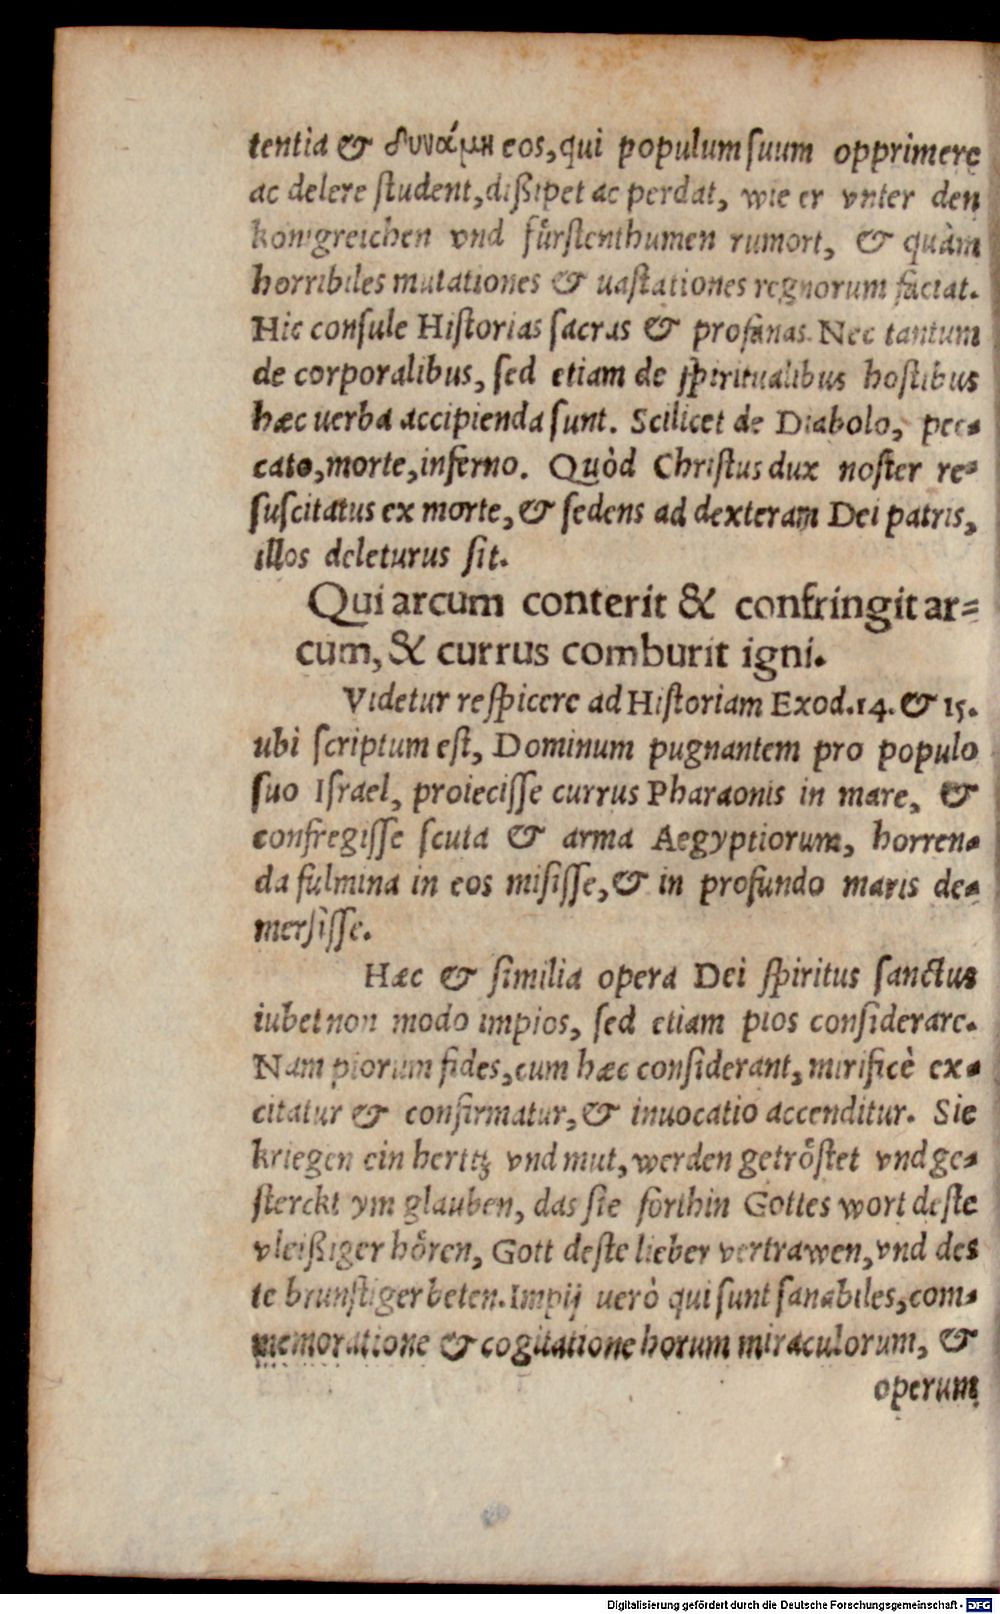 tentia & δυνάμει eos, qui populum suum opprimere
ac delere student, dißipet ac perdat, wie er vnter den
konigreichen vnd fuͤrstenthumen rumort, & quàm
horribiles mutationes & uastationes regnorum faciat.
Hic consule Historias sacras & profanas. Nec tantum
de corporalibus, sed etiam de spiritualibus hostibus
hæc uerba accipienda sunt. Scilicet de Diabolo, pec⸗
cato, morte, inferno. Quòd Christus dux noster re⸗
suscitatus ex morte, & sedens ad dexteram Dei patris,
illos deleturus sit.
Qui arcum conterit & confringit ar⸗
cum, & currus comburit igni.
Videtur respicere ad Historiam Exod.14. & 15.
ubi scriptum est, Dominum pugnantem pro populo
suo Israel, proiecisse currus Pharaonis in mare, &
confregisse scuta & arma Aegyptiorum, horren⸗
da fulmina in eos misisse, & in profundo maris de⸗
mersisse.
Hæc & similia opera Dei spiritus sanctus
iubet non modo impios, sed etiam pios considerare.
Nam piorum fides, cum hæc considerant, mirificè ex⸗
citatur & confirmatur, & inuocatio accenditur. Sie
kriegen ein herttz vnd mut, werden getroͤstet vnd ge⸗
sterckt ym glauben, das sie forthin Gottes wort deste
vleißiger hoͤren, Gott deste lieber vertrawen, vnd des
te brunstiger beten. Impij uerò qui sunt sanabiles, com⸗
memoratione & cogitatione horum miraculorum, &
operum
Digitalisierung gefördert durch die Deutsche Forschungsgemeinschaft - DFG